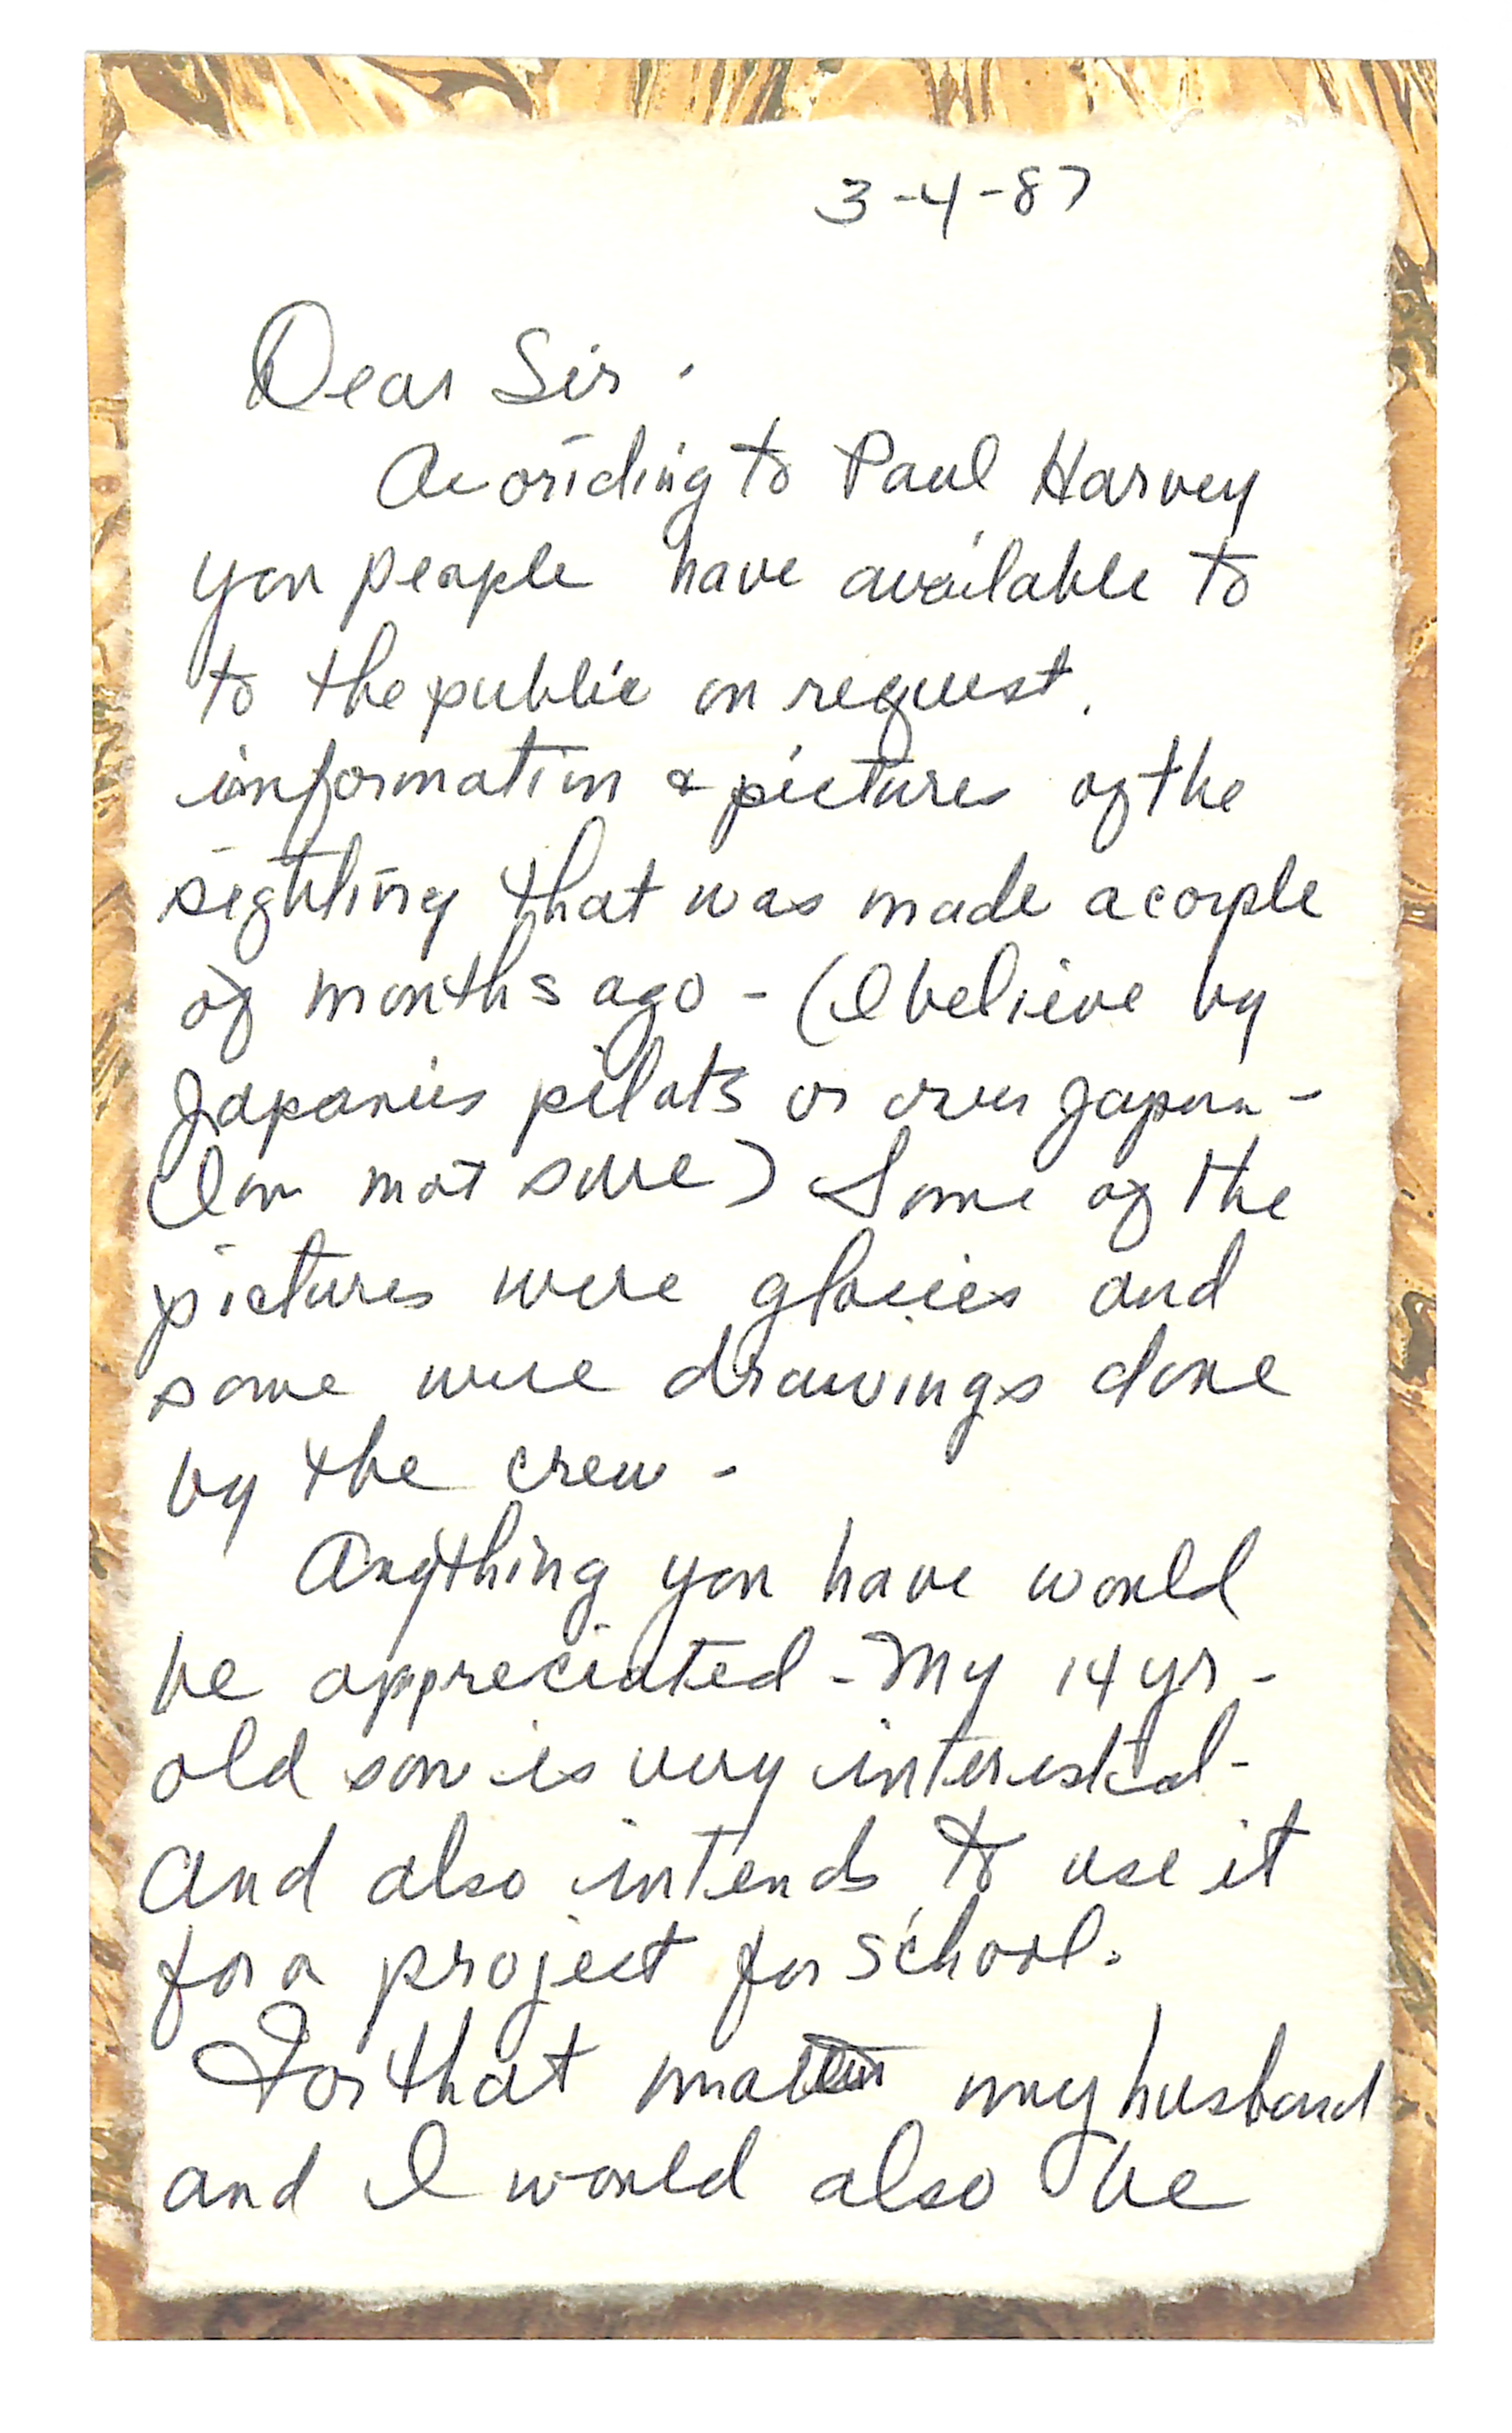 3-4-87
Dear Sir.
Acoriding to Paul Harvey
you people have available to
to the public on request.
information & pictures of the
sighting that was made a couple
of months ago - (I believe by
Japanies pilots or over Japan -
(Im not sure) Some of the
pictures were glosies and
some were drawings done
by the crew -
Anything you have would
be appreciated - My 14 yr -
old son is very interested -
and also intends to use it
for a project for school.
For that matter my husband
and I would also be